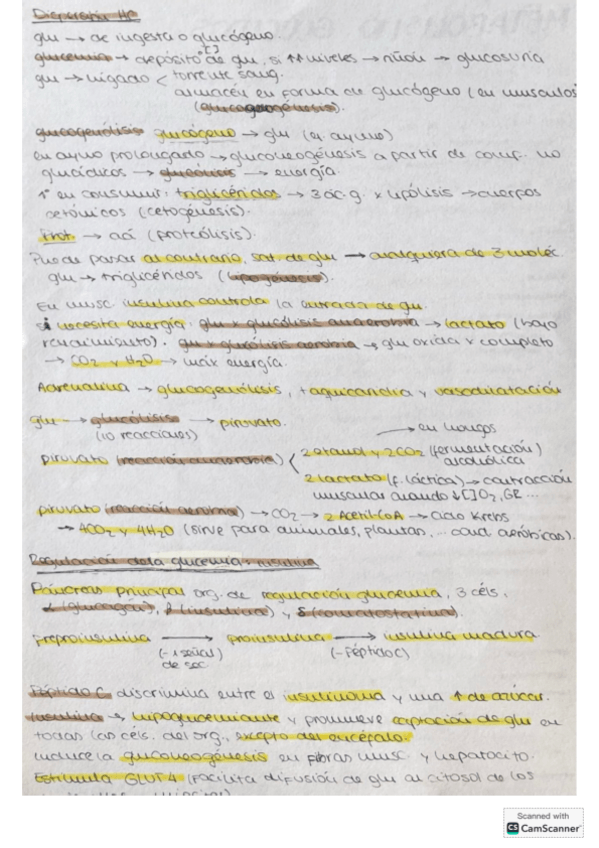 Digestión HC
glu → de ingesta o glucógeno
glucemia → depósito de glu, si ↑↑ niveles → riñón → glucosuria
[ ]
glu → hígado < torrente sang.
almacén en forma de glucógeno (en musculos
(glucogenogénesis).
glucogenólisis glucógeno → glu (en ayuno)
en ayuno prolongado → gluconeogénesis a partir de comp. no
glucídicos → glucólisis → energía.
1º en consumir: triglicéridos → 3 ác.g. x lipólisis → cuerpos
cetónicos (cetogénesis).
Prot. → aá (proteólisis).
Puede pasar al contrario, sat. de glu → cualquiera de 3 moléc.
glu → triglicéridos (lipogénesis).
En musc. insulina controla la entrada de glu.
Si necesita energía: glu x glucólisis anaerobia → lactato (bajo
rendimiento). glu x glucólisis aerobia → glu oxida x completo
→ CO2 y H2O → máx energía.
Adrenalina → glucogenólisis, taquicardia y vasodilatación
glu → glucólisis → piruvato.
(10 reacciones)
→ en hongos
piruvato (reacción anaerobia) < 2 etanol y 2CO2 (fermentación)
alcohólica
2 lactato (f. láctica) → contracción
muscular cuando ↓[]O2, GR...
piruvato (reacción aerobia) → CO2 → 2 Acetil CoA → Ciclo Krebs
→ 4CO2 y 4H2O (sirve para animales, plantas, ... cond. aeróbicas).
Regulación de la glucemia: insulina
Páncreas principal org. de regulación glucemia, 3 céls.
α (glucagón), β (insulina) y δ (somatostatina).
preproinsulina → proinsulina → insulina madura
(-1 señal (-Péptido C)
de sec
Péptido C discrimina entre el insulinoma y una ↑ de azúcar.
Insulina → hipoglucemiante y promueve captación de glu en
todas las céls. del org., excepto del encéfalo.
induce la gluconeogénesis en fibras musc. y hepatocito.
Estimula GLUT4 (facilita difusión de glu al citosol de los
Scanned with
CS CamScanner